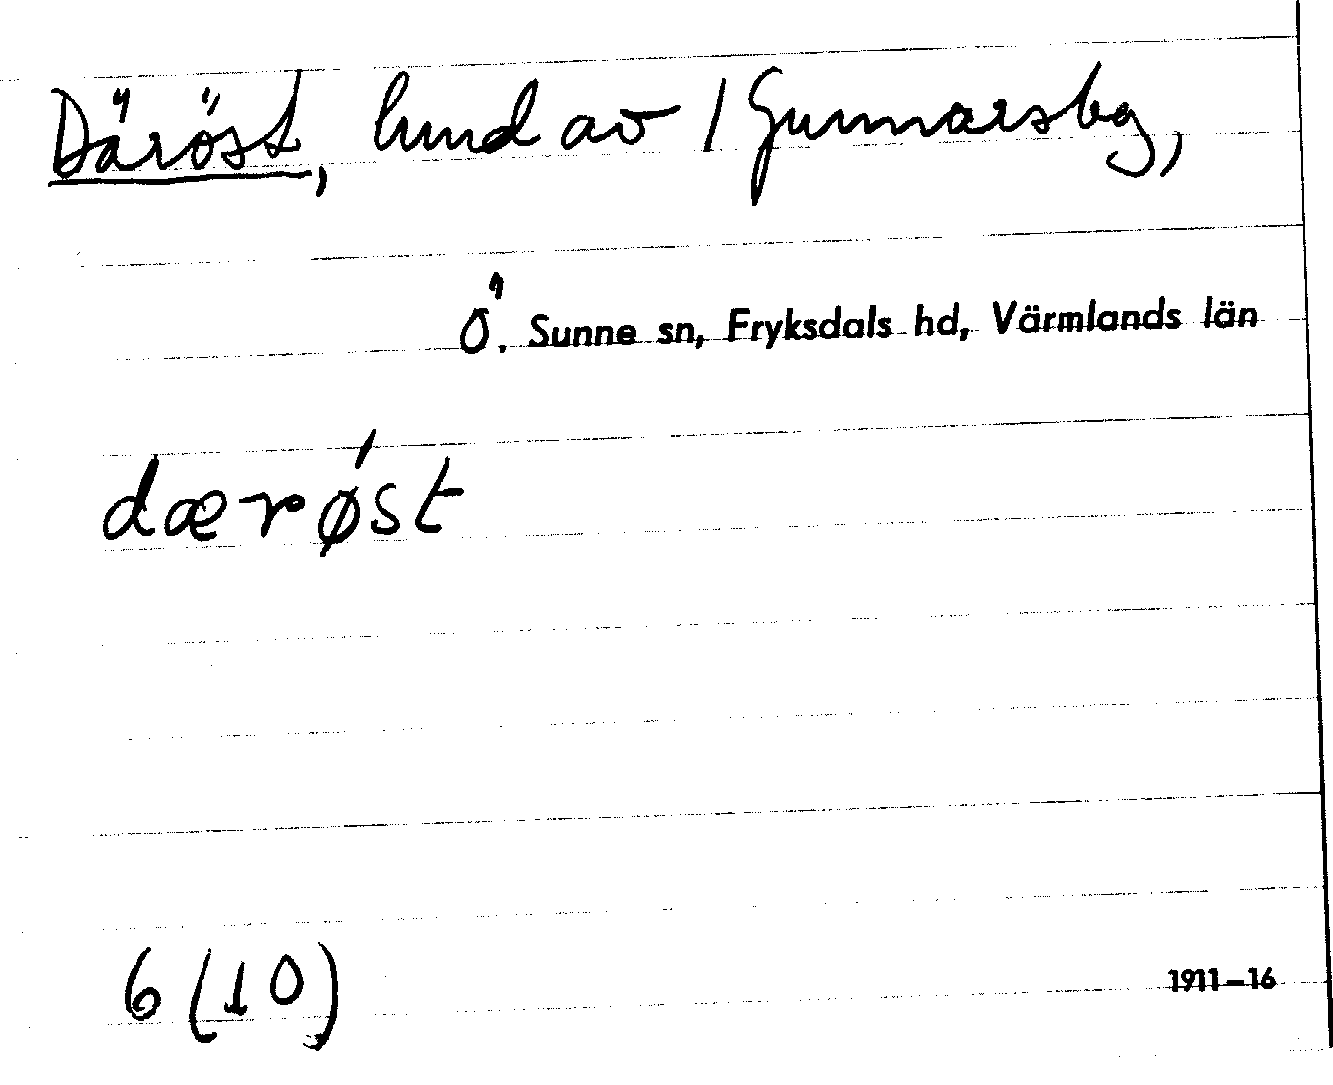 Däröst, lund av 1 Gunnarsbg,
Ö. Sunne sn, Fryksdals hd, Värmlands län
dærǿst
6 (10)
1911—16